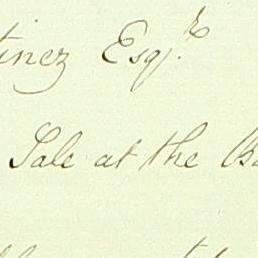 tinez Esqr.
Sale at the Ba